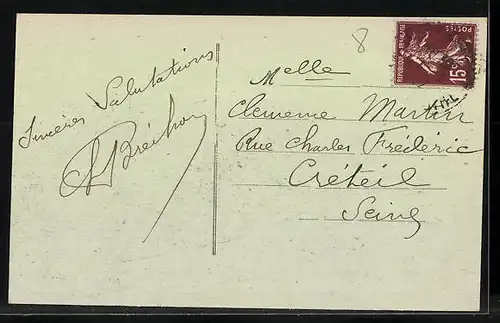 Sincères Salutations
8
RÉPUBLIQUE FRANÇAISE
POSTES
15c
Melle
Clemence Martin
Rue Charles Frédéric
Créteil
Seine